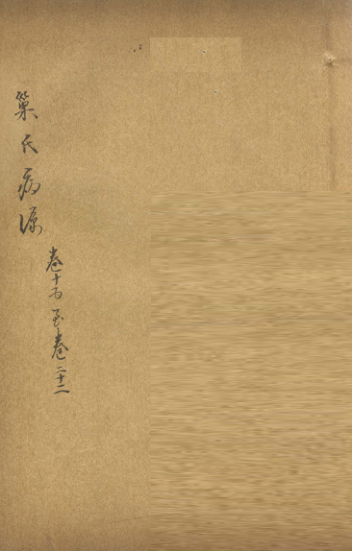 巢氏病源
卷十五至卷二十二